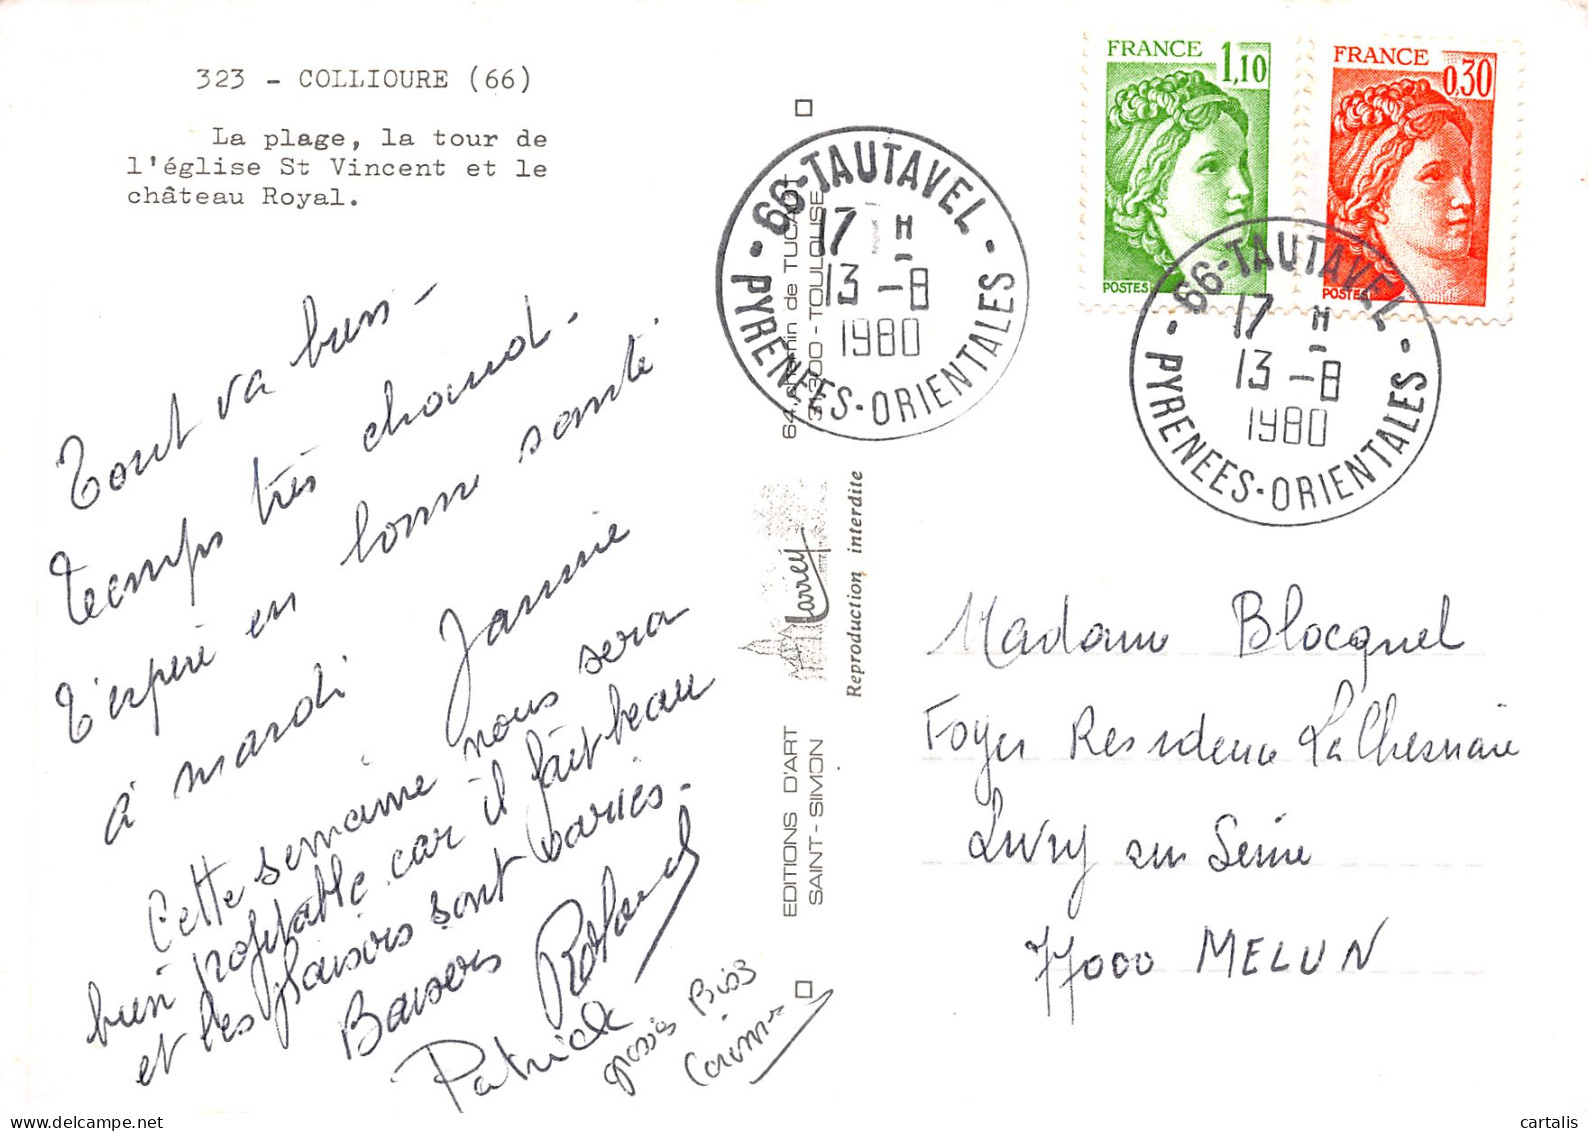 323 - COLLIOURE (66)
La plage, la tour de
l'église St Vincent et le
château Royal.
Tout va bien -
Temps très chaud -
T'espère en bonne santé.
à mardi Jannie
Cette semaine nous sera
bien profitable car il fait beau
et les plaisirs sont variés.
Baisers Roland
Patrick
gossis Bisz
64, chemin de TUCAUT
31300 - TOULOUSE
Larrey
Reproduction interdite
EDITIONS D'ART
SAINT-SIMON
66-TAUTAVEL
17 H
13 -8
1980
PYRENEES-ORIENTALES
FRANCE 1,10
POSTES
FRANCE 0,30
POSTES
66-TAUTAVEL
17 H
13 -8
1980
PYRENEES-ORIENTALES
Madame Blocquel
Foyer Residence La Chesnaie
Livry sur Seine
77000 MELUN
cartalis